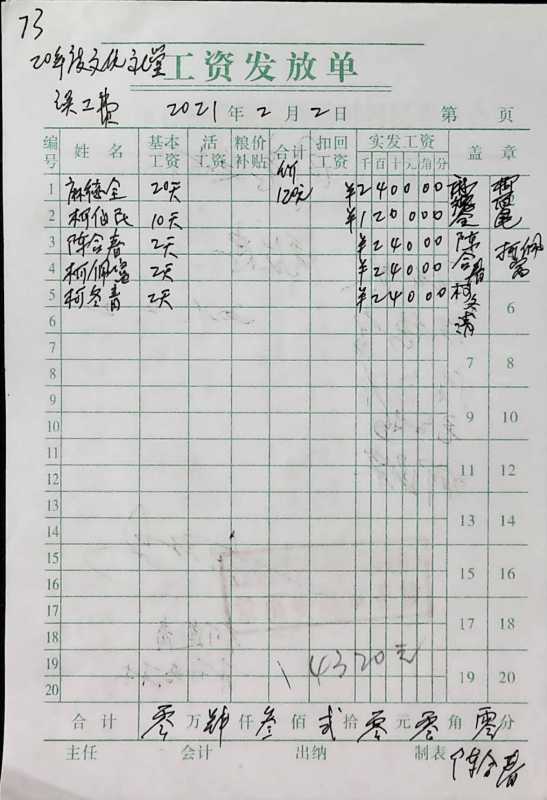 73
20年 文化文化堂 工资发放单
误工费 2021年2月2日 第 页
编号 姓名 基本工资 活工资 粮价补贴 合计 扣回工资 实发工资 盖章
千百十元角分
1 20天 价120元 ¥240000
2 柯伯民 10天 ¥120000
3 陈合春 2天 ¥24000 陈合春 柯佩富
4 柯佩富 2天 ¥24000
5 柯冬青 2天 ¥24000 柯冬青
6 6
7 7 8
8
9 9 10
10
11 11 12
12
13 13 14
14
15 15 16
16
17 17 18
18
19 4320元 19 20
20
合计 零万肆仟叁佰贰拾零元零角零分
主任 会计 出纳 制表 陈合春